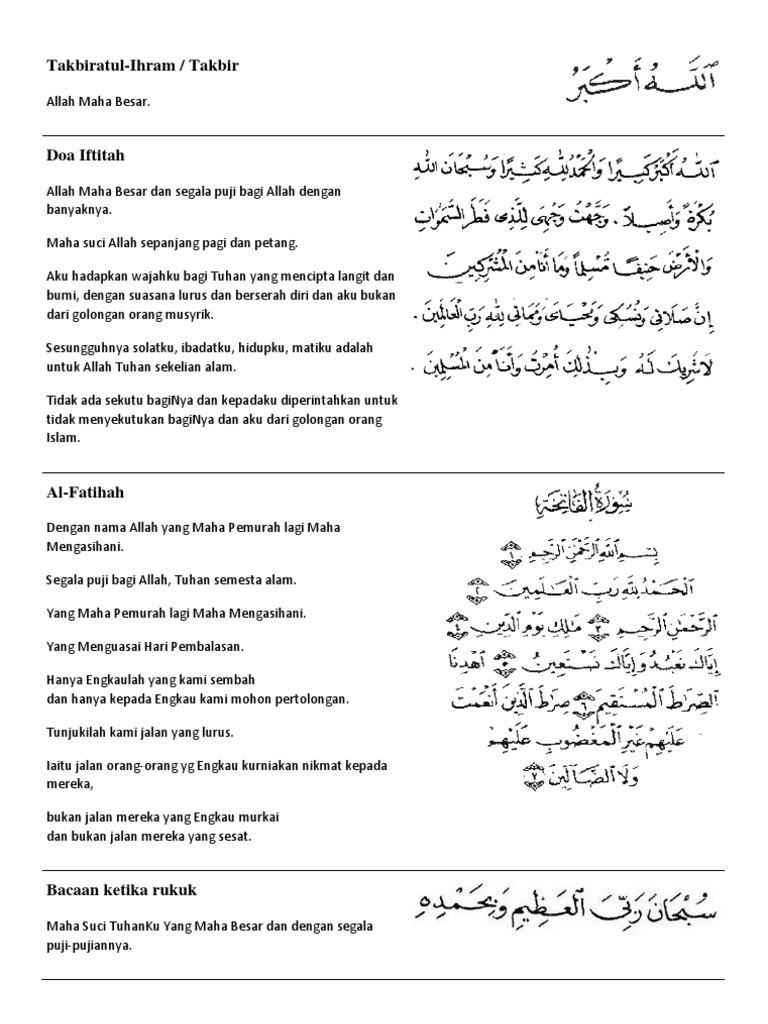 Takbiratul-Ihram / Takbir
اَللَّهُ أَكْبَرُ
Allah Maha Besar.
Doa Iftitah
اَللَّهُ أَكْبَرُ كَبِيْرًا وَالْحَمْدُ لِلَّهِ كَثِيْرًا وَسُبْحَانَ اللهِ
بُكْرَةً وَأَصِيْلاً . وَجَّهْتُ وَجْهِىَ لِلَّذِى فَطَرَ السَّمٰوَاتِ
وَالْأَرْضَ حَنِيْفًا مُسْلِمًا وَمَا أَنَا مِنَ الْمُشْرِكِيْنَ
إِنَّ صَلَاتِى وَنُسُكِى وَمَحْيَاىَ وَمَمَاتِى لِلَّهِ رَبِّ الْعَالَمِيْنَ .
لَا شَرِيْكَ لَهُ وَبِذٰلِكَ أُمِرْتُ وَأَنَا مِنَ الْمُسْلِمِيْنَ .
Allah Maha Besar dan segala puji bagi Allah dengan
banyaknya.
Maha suci Allah sepanjang pagi dan petang.
Aku hadapkan wajahku bagi Tuhan yang mencipta langit dan
bumi, dengan suasana lurus dan berserah diri dan aku bukan
dari golongan orang musyrik.
Sesungguhnya solatku, ibadatku, hidupku, matiku adalah
untuk Allah Tuhan sekelian alam.
Tidak ada sekutu bagiNya dan kepadaku diperintahkan untuk
tidak menyekutukan bagiNya dan aku dari golongan orang
Islam.
Al-Fatihah
سُورَةُ الْفَاتِحَةِ
بِسْمِ ٱللَّهِ ٱلرَّحْمَٰنِ ٱلرَّحِيمِ ١
ٱلْحَمْدُ لِلَّهِ رَبِّ ٱلْعَٰلَمِينَ ٢
ٱلرَّحْمَٰنِ ٱلرَّحِيمِ ٣ مَٰلِكِ يَوْمِ ٱلدِّينِ ٤
إِيَّاكَ نَعْبُدُ وَإِيَّاكَ نَسْتَعِينُ ٥ ٱهْدِنَا
ٱلصِّرَٰطَ ٱلْمُسْتَقِيمَ ٦ صِرَٰطَ ٱلَّذِينَ أَنْعَمْتَ
عَلَيْهِمْ غَيْرِ ٱلْمَغْضُوبِ عَلَيْهِمْ
وَلَا ٱلضَّآلِّينَ ٧
Dengan nama Allah yang Maha Pemurah lagi Maha
Mengasihani.
Segala puji bagi Allah, Tuhan semesta alam.
Yang Maha Pemurah lagi Maha Mengasihani.
Yang Menguasai Hari Pembalasan.
Hanya Engkaulah yang kami sembah
dan hanya kepada Engkau kami mohon pertolongan.
Tunjukilah kami jalan yang lurus.
Iaitu jalan orang-orang yg Engkau kurniakan nikmat kepada
mereka,
bukan jalan mereka yang Engkau murkai
dan bukan jalan mereka yang sesat.
Bacaan ketika rukuk
سُبْحَانَ رَبِّىَ الْعَظِيْمِ وَبِحَمْدِهِ
Maha Suci TuhanKu Yang Maha Besar dan dengan segala
puji-pujiannya.